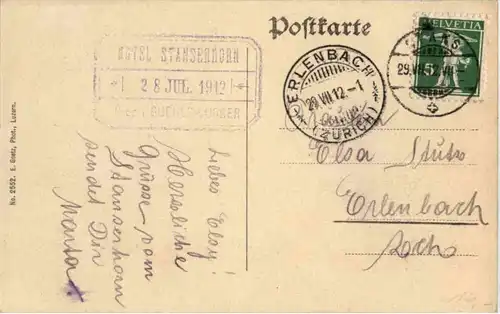 Postkarte
HOTEL STANSERHORN
28 JUL. 1912
ERLENBACH
29.VII.12.-1
(ZÜRICH)
STANS
29.VII.12.VII
HELVETIA
5
Elsa Stutz
Erlenbach
Liebes Elsy!
Herzliche
Grüsse vom
Stanserhorn
sendet Dir
Marta
No. 2592. E. Goetz, Phot., Luzern.